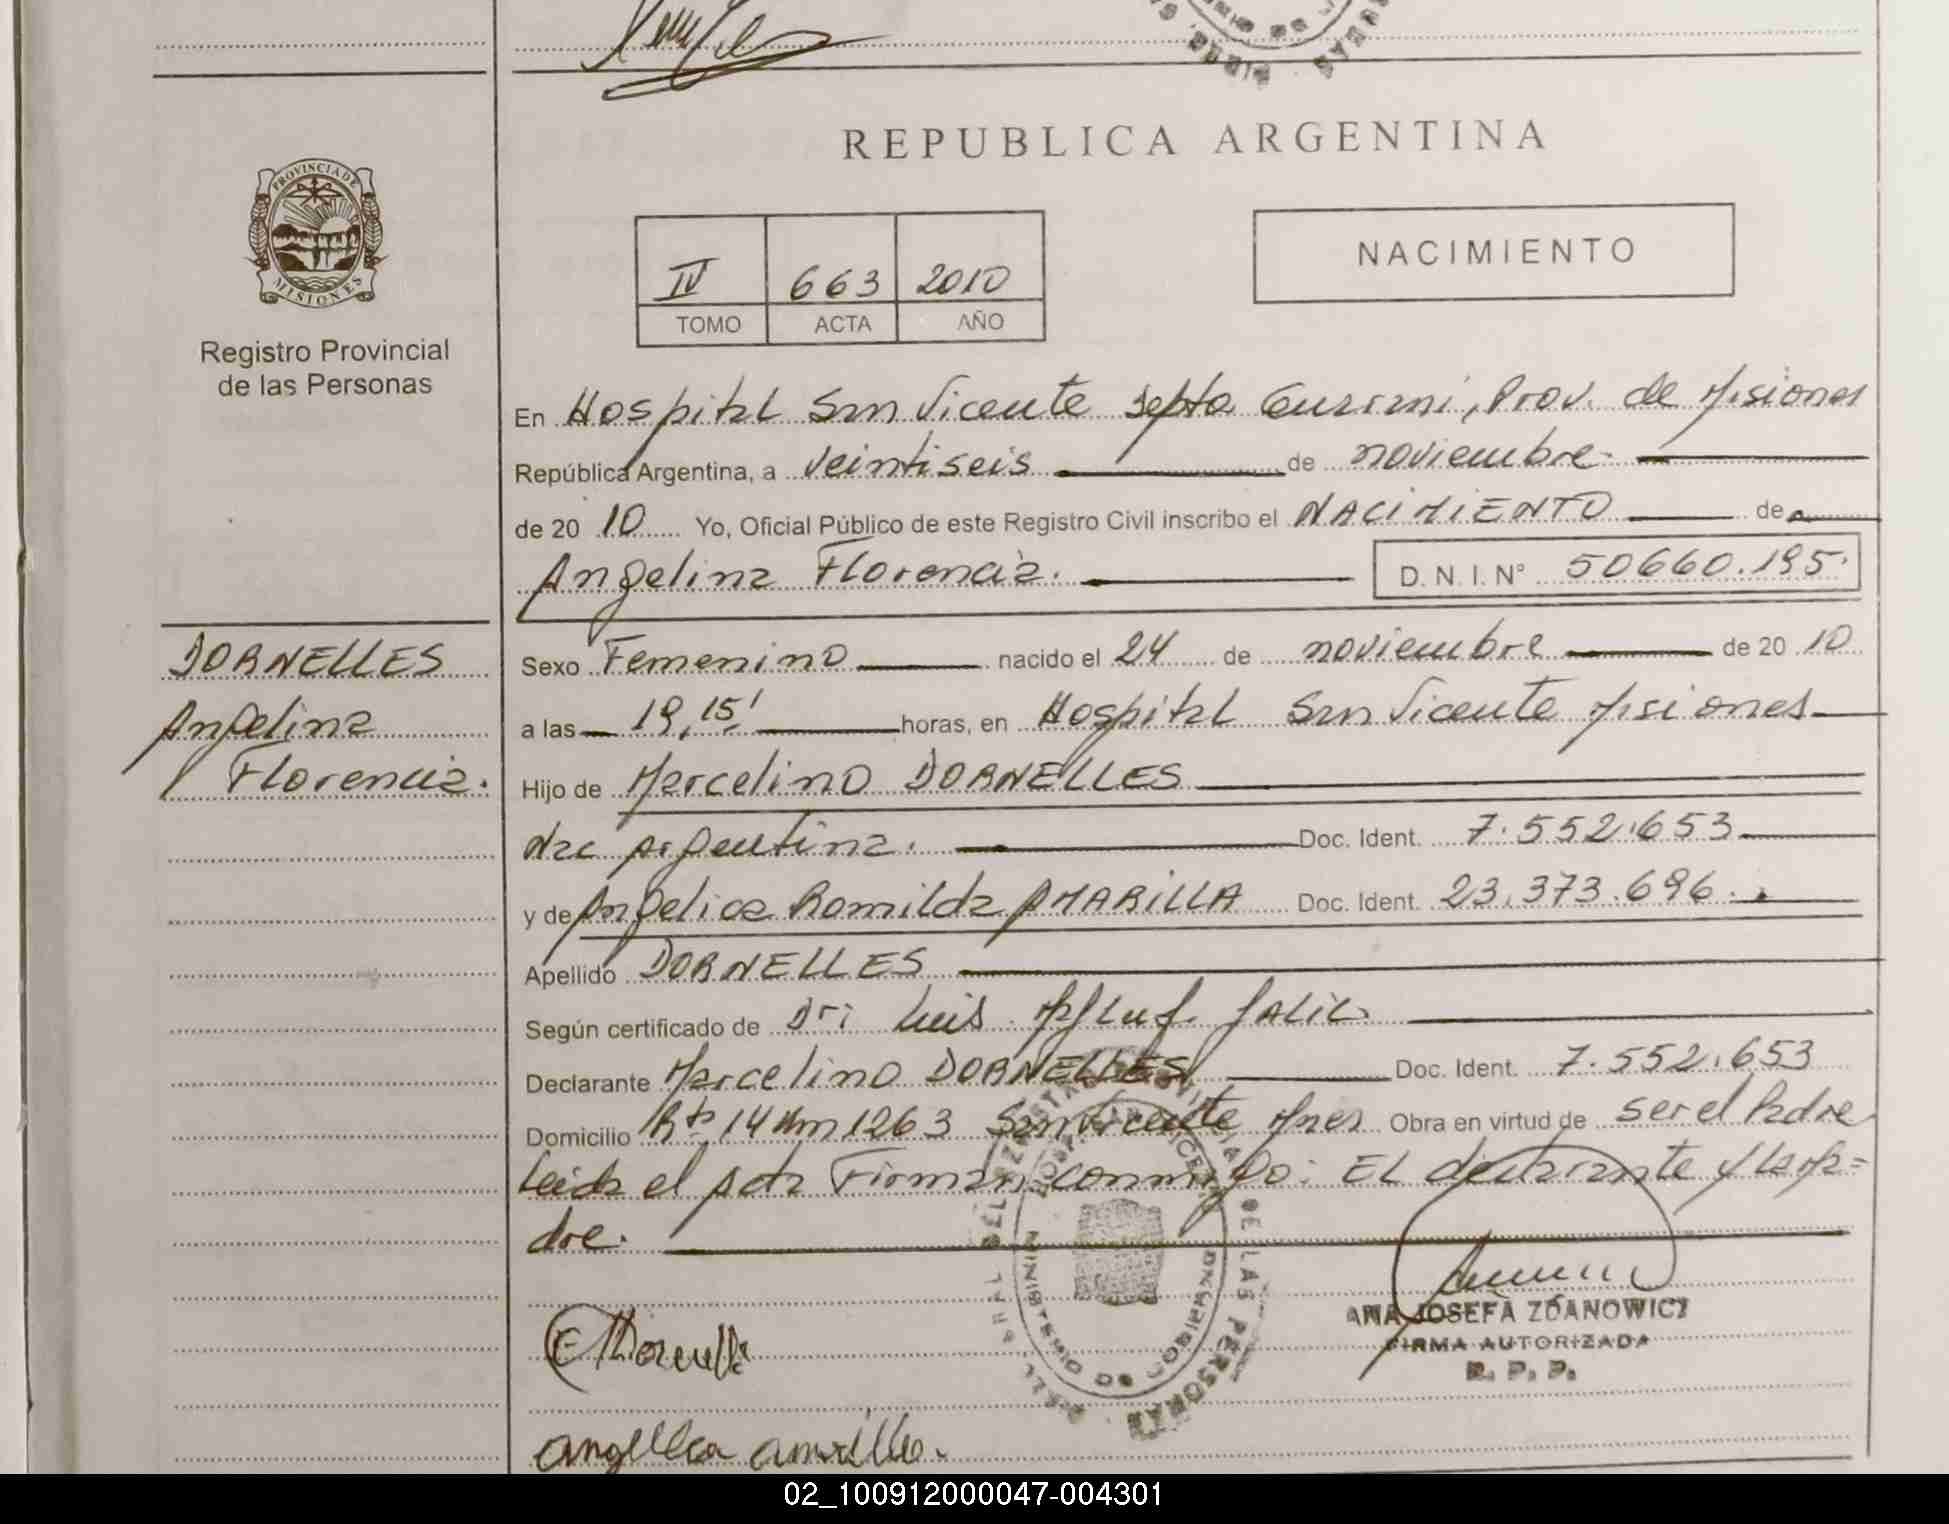 REPUBLICA ARGENTINA
PROVINCIA DE
MISIONES
Registro Provincial
de las Personas
IV 663 2010
TOMO ACTA AÑO
NACIMIENTO
En Hospital San Vicente Depto Guarani, Prov. de Misiones
República Argentina, a veintiseis de noviembre
de 20 10 Yo, Oficial Público de este Registro Civil inscribo el NACIMIENTO de
Angelina Florencia. D. N. I. Nº 50660.195.
DORNELLES
Angelina
Florencia.
Sexo Femenino nacido el 24 de noviembre de 20 10
a las 19,15' horas, en Hospital San Vicente Misiones
Hijo de Marcelino DORNELLES
Nac Argentina. Doc. Ident. 7.552.653
y de Angelica Romilda AMARILLA Doc. Ident. 23.373.696.
Apellido DORNELLES
Según certificado de Dr: Luis JALIL
Declarante Marcelino DORNELLES Doc. Ident. 7.552.653
Domicilio Rta 14 Km 1263 San Vicente Mnes Obra en virtud de ser el Padre
Leida el Acta Firman conmigo: EL declarante y la Ma=
dre.
ANA JOSEFA ZDANOWICZ
FIRMA AUTORIZADA
R. P. P.
angelica amarilla.
02_100912000047-004301